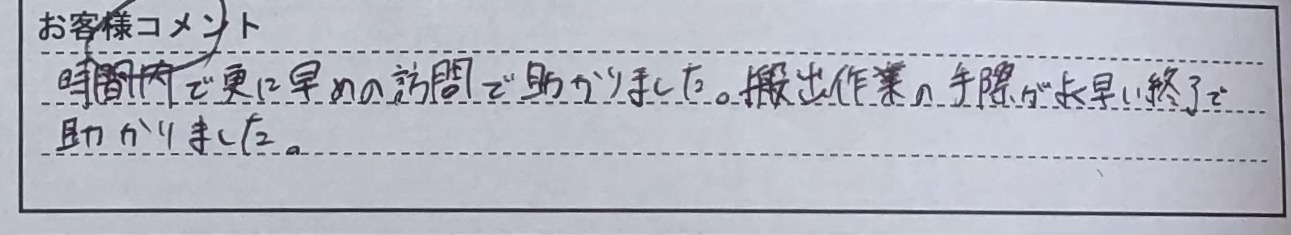 お客様コメント
時間内で更に早めの訪問で助かりました。搬出作業の手際がよく早い終了で
助かりました。